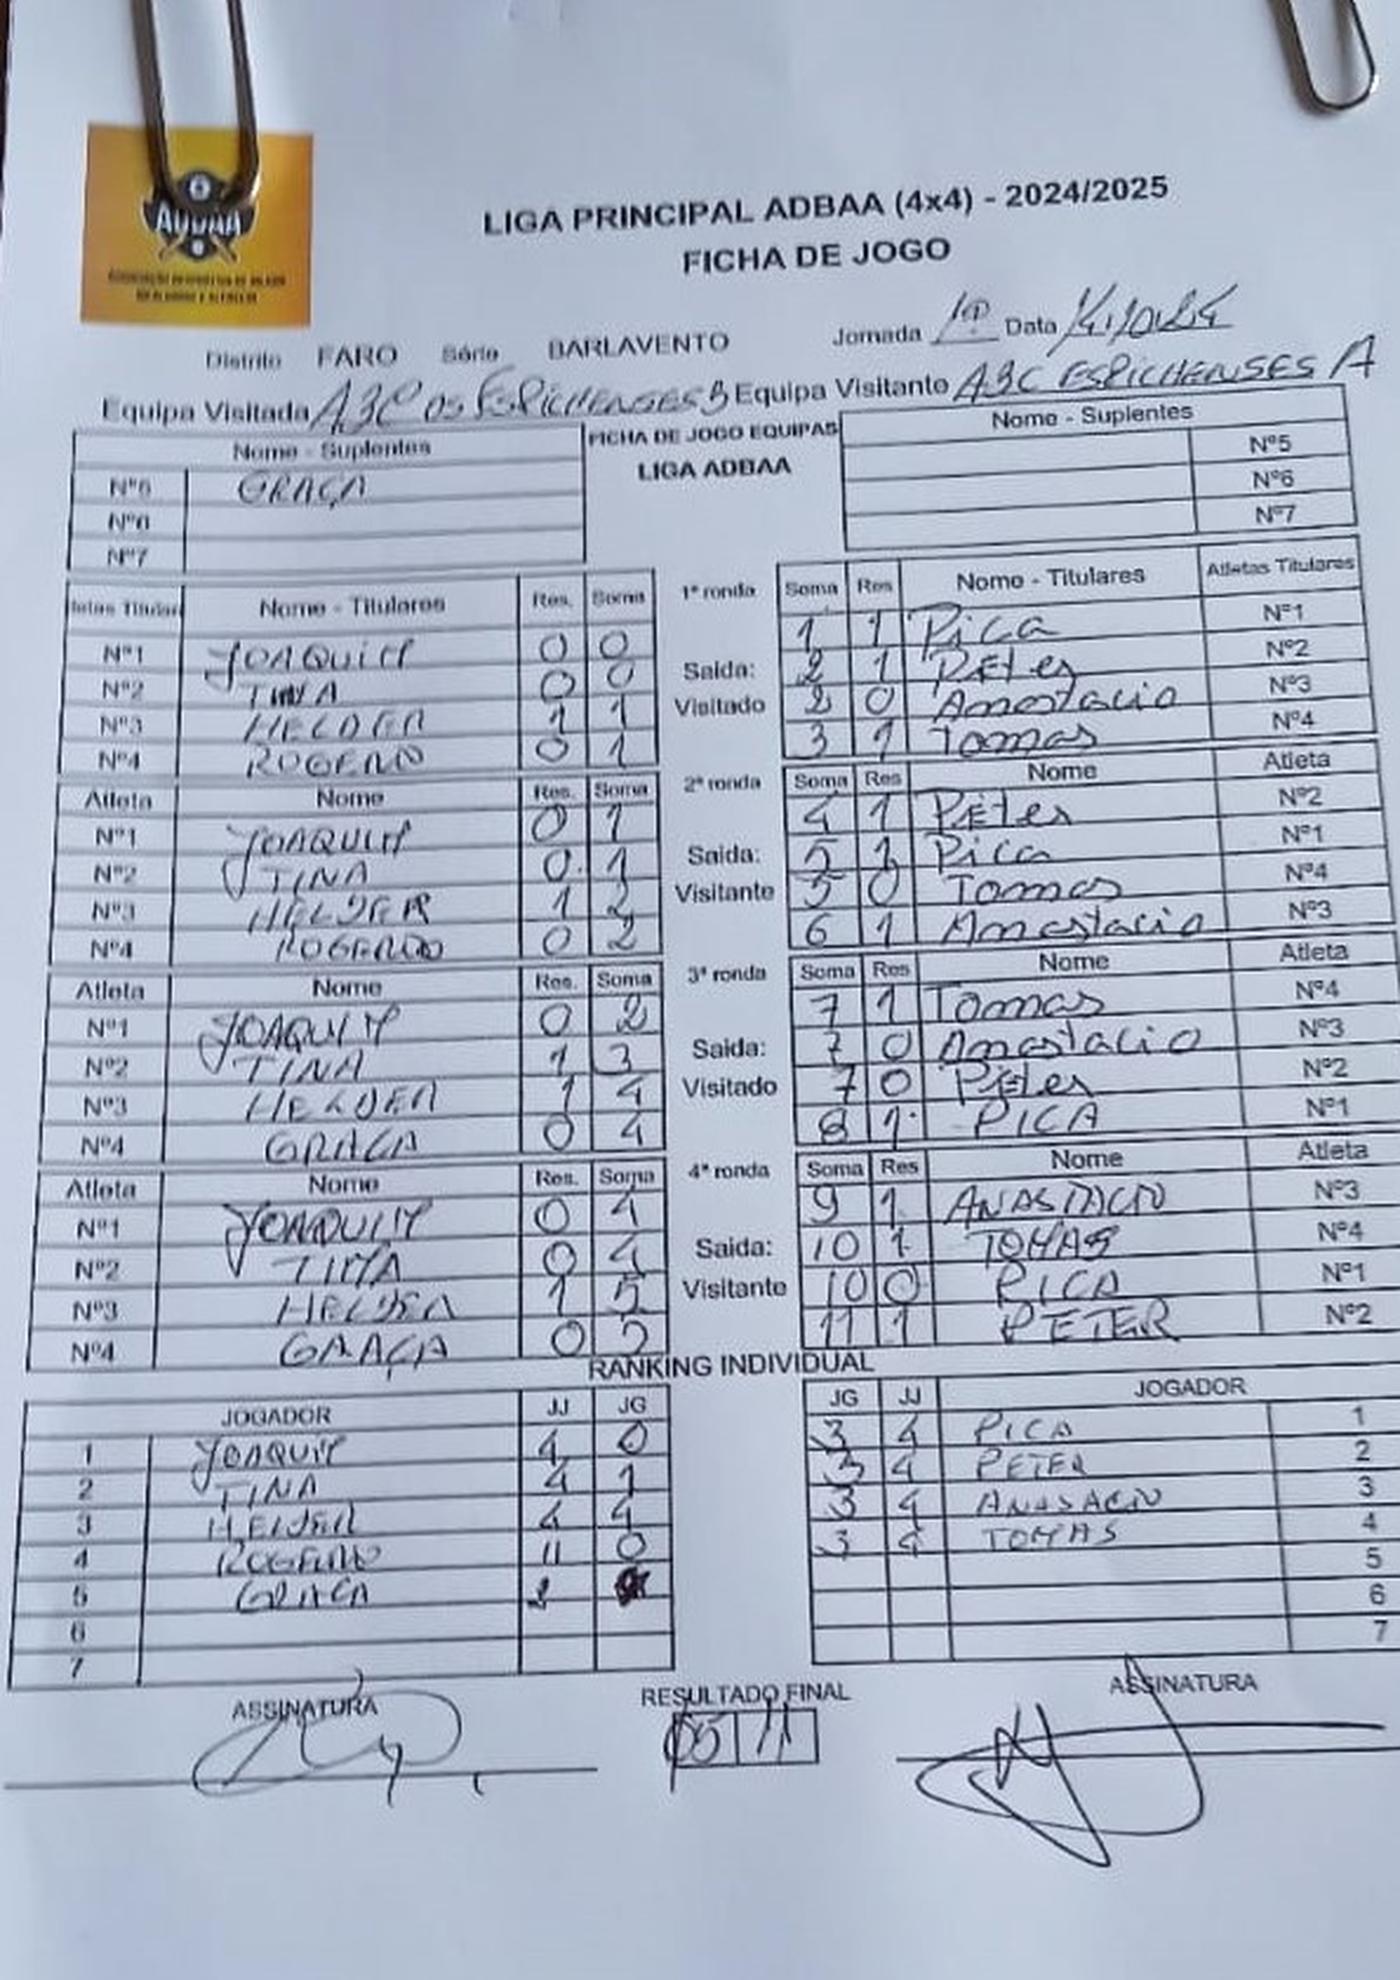 ADBAA
LIGA PRINCIPAL ADBAA (4x4) - 2024/2025
FICHA DE JOGO
Distrito FARO Série BARLAVENTO Jornada 1ª Data
Equipa Visitada ABC OS ESPICHENSES B Equipa Visitante ABC ESPICHENSES A
Nome - Suplentes FICHA DE JOGO EQUIPAS Nome - Suplentes
LIGA ADBAA
GRAÇA Nº5
Nº6
Nº7 Nº7
Nome - Titulares Res. Soma 1ª ronda Soma Res Nome - Titulares Atletas Titulares
Nº1 JOAQUIM 0 0 1 1 Pica Nº1
Nº2 TINA 0 0 Saida: 2 1 Peter Nº2
Nº3 HELDER 1 1 Visitado 2 0 Anastacio Nº3
Nº4 ROGERIO 0 1 3 1 Tomas Nº4
Atleta Nome Res. Soma 2ª ronda Soma Res Nome Atleta
Nº1 JOAQUIM 0 1 4 1 Peter Nº2
Nº2 TINA 0 1 Saida: 5 1 Pica Nº1
Nº3 HELDER 1 2 Visitante 5 0 Tomas Nº4
Nº4 ROGERIO 0 2 6 1 Anastacio Nº3
Atleta Nome Res. Soma 3ª ronda Soma Res Nome Atleta
Nº1 JOAQUIM 0 2 7 1 Tomas Nº4
Nº2 TINA 1 3 Saida: 7 0 Anastacio Nº3
Nº3 HELDER 1 4 Visitado 7 0 Peter Nº2
Nº4 GRAÇA 0 4 8 1 PICA Nº1
Atleta Nome Res. Soma 4ª ronda Soma Res Nome Atleta
Nº1 JOAQUIM 0 4 9 1 ANASTACIO Nº3
Nº2 TINA 0 4 Saida: 10 1 TOMAS Nº4
Nº3 HELDER 1 5 Visitante 10 0 PICA Nº1
Nº4 GRAÇA 0 5 11 1 PETER Nº2
RANKING INDIVIDUAL
JOGADOR JJ JG JG JJ JOGADOR
1 JOAQUIM 4 0 3 4 PICA 1
2 TINA 4 1 3 4 PETER 2
3 HELDER 4 4 3 4 ANASACIO 3
4 ROGERIO 11 0 3 4 TOMAS 4
5 GRAÇA 5
6 6
7 7
ASSINATURA RESULTADO FINAL ASSINATURA
05 11